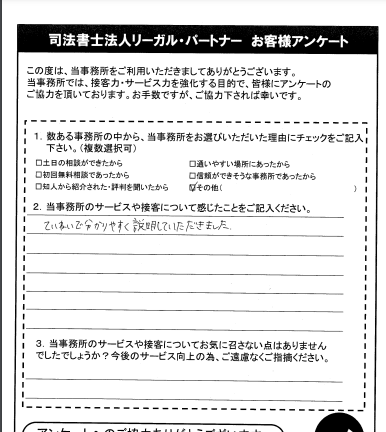 司法書士法人リーガル・パートナー お客様アンケート
この度は、当事務所をご利用いただきましてありがとうございます。
当事務所では、接客力・サービス力を強化する目的で、皆様にアンケートの
ご協力を頂いております。お手数ですが、ご協力下されば幸いです。
1. 数ある事務所の中から、当事務所をお選びいただいた理由にチェックをご記入
下さい。（複数選択可）
□土日の相談ができたから □通いやすい場所にあったから
□初回無料相談であったから □信頼ができそうな事務所であったから
□知人から紹介された・評判を聞いたから ☑その他( )
2. 当事務所のサービスや接客について感じたことをご記入ください。
ていねいで分かりやすく説明していただきました。
3. 当事務所のサービスや接客についてお気に召さない点はありません
でしたでしょうか？今後のサービス向上の為、ご遠慮なくご指摘ください。